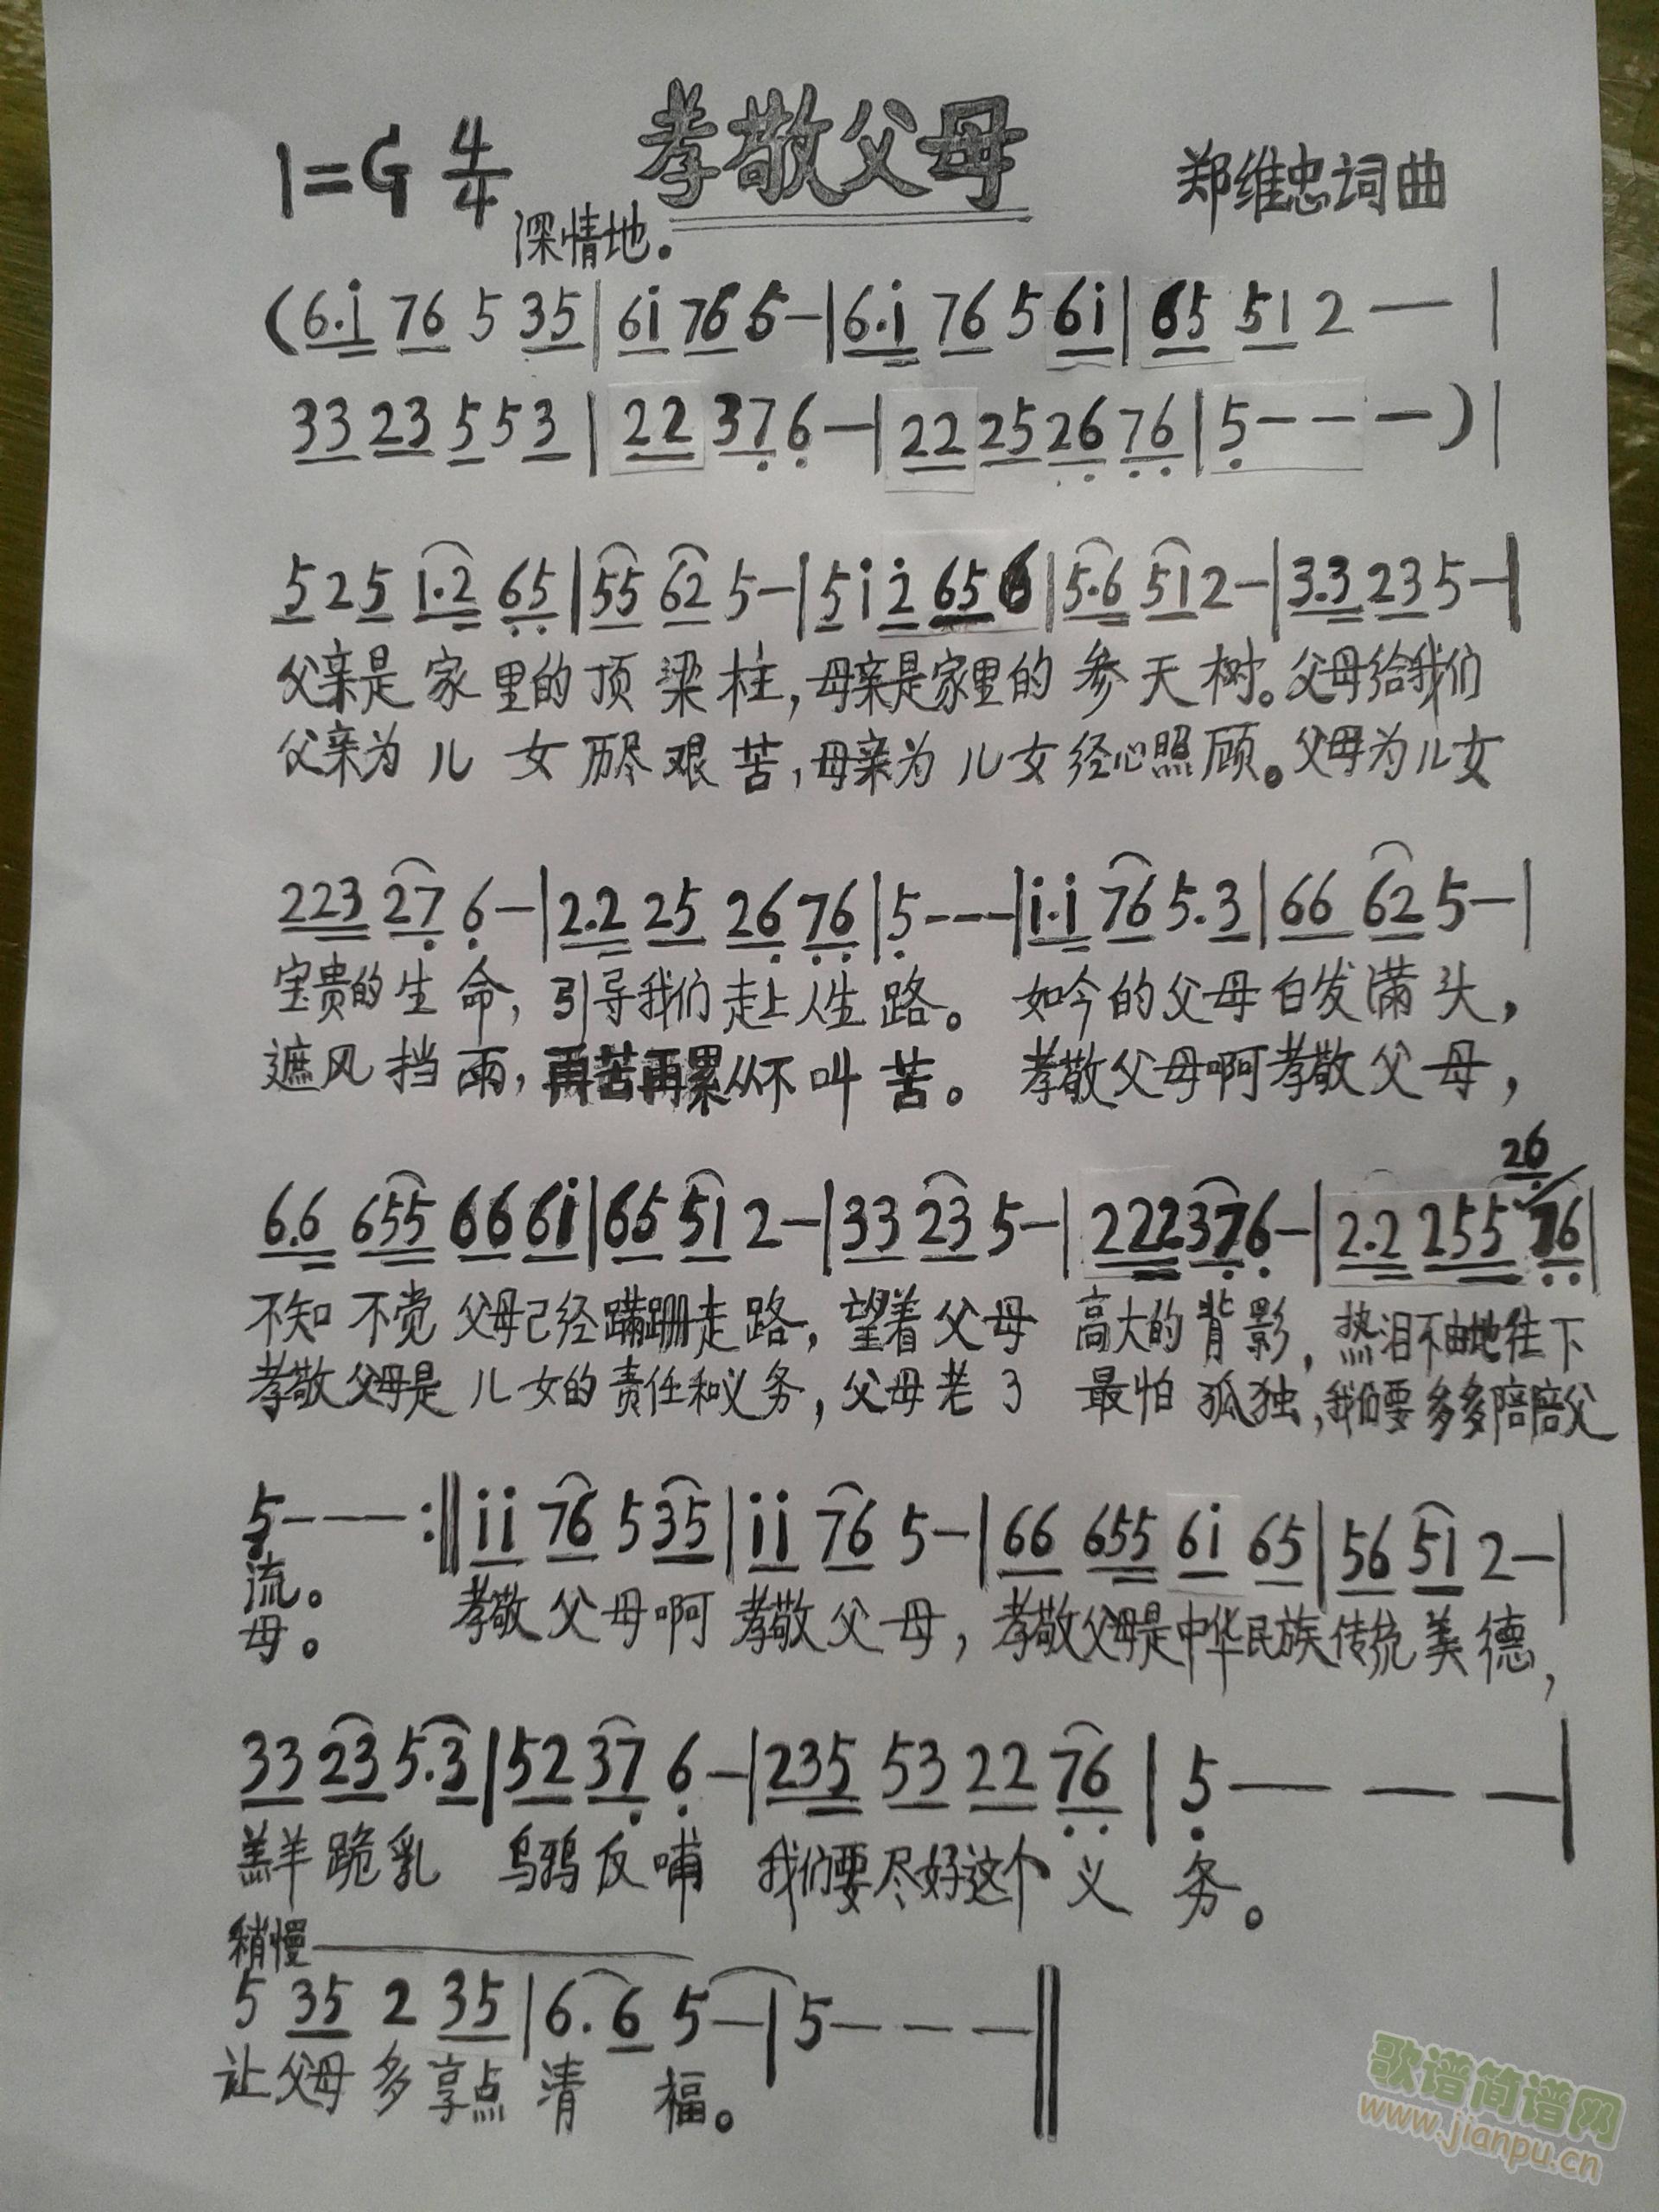 孝敬父母
1=G 4/4
郑维忠词曲
深情地。
(6.i 76 5 35|6i 76 5—|6.i 76 5 6i|65 51 2 — |
33 23 5 5 3 | 22 37 6 —|22 25 26 76|5 - - —)|
5 2 5 1.2 65|55 62 5—|5 i 2 65 6|5.6 51 2—|3.3 23 5—|
父亲是家里的顶梁柱,母亲是家里的参天树。父母给我们
父亲为儿女历尽艰苦,母亲为儿女经心照顾。父母为儿女
223 27 6—|2.2 25 26 76|5 - - -|i.i 76 5.3|66 62 5—|
宝贵的生命,引导我们走上人生路。如今的父母白发满头,
遮风挡雨,再苦再累从不叫苦。孝敬父母啊孝敬父母,
26
6.6 655 66 6i|65 51 2—|33 23 5—|222 37 6—|2.2 255 76|
不知不觉父母已经蹒跚走路,望着父母高大的背影,热泪不由地往下
孝敬父母是儿女的责任和义务,父母老了最怕孤独,我们要多多陪陪父
5 - — — :‖ii 76 5 35|ii 76 5—|66 655 6i 65|56 51 2—|
流。孝敬父母啊孝敬父母,孝敬父母是中华民族传统美德,
母。
33 23 5.3|52 37 6—|235 53 22 76 | 5 — — —|
羔羊跪乳 乌鸦反哺 我们要尽好这个义务。
稍慢
5 35 2 35|6.6 5—|5 — — —‖
让父母多享点清福。
歌谱简谱网
www.jianpu.cn